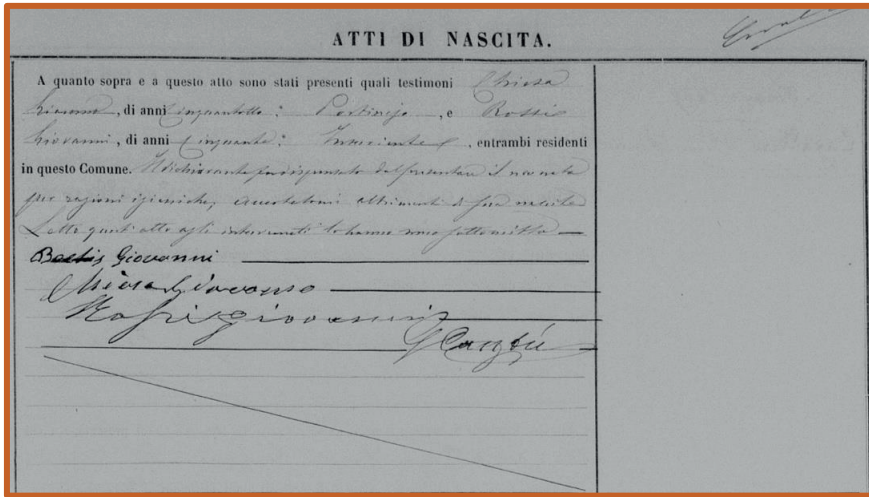 ATTI DI NASCITA.
A quanto sopra e a questo atto sono stati presenti quali testimoni Chiesa
Giovanni, di anni cinquantotto, Portinajo, e Rossi
Giovanni, di anni cinquanta, Inserviente, entrambi residenti
in questo Comune. Il dichiarante fu dispensato dal presentare il neonato
per ragioni igieniche, accertatomi altrimenti di sua nascita
Letto questo atto agli intervenuti lo hanno meco sottoscritto
Giovanni
Chiesa Giovanni
Rossi Giovanni
Cantù